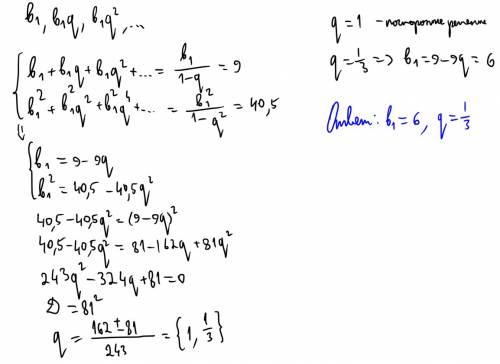 b₁, b₁q, b₁q², ...
{ b₁ + b₁q + b₁q² + ... = b₁/(1-q) = 9
b₁² + b₁²q² + b₁²q⁴ + ... = b₁²/(1-q²) = 40,5
⇓
{ b₁ = 9 - 9q
b₁² = 40,5 - 40,5q²
40,5 - 40,5q² = (9 - 9q)²
40,5 - 40,5q² = 81 - 162q + 81q²
243q² - 324q + 81 = 0
D = 81²
q = (162 ± 81)/243 = {1, 1/3}
q = 1 - посторонне решение
q = 1/3 => b₁ = 9 - 9q = 6
Ответ: b₁ = 6, q = 1/3